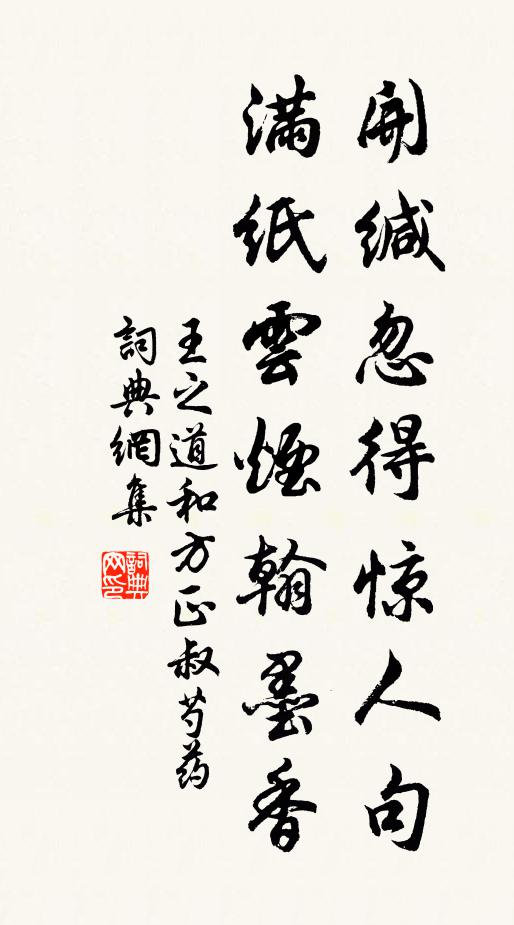 開缄忽得惊人句
满紙雲煙翰墨香
王之道和方正叔芍药
詞典網集
詞典網印